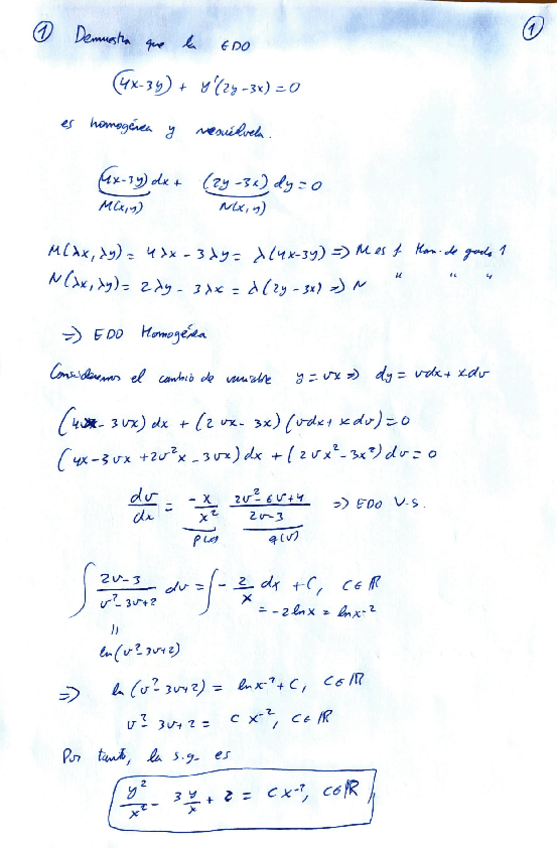 ① Demuestra que la EDO ①
(4x-3y) + y'(2y-3x)=0
es homogénea y resuélvela.
(4x-3y) dx + (2y-3x) dy = 0
M(x,y) N(x,y)
M(λx,λy) = 4λx - 3λy = λ(4x-3y) => M es f. Hom. de grado 1
N(λx,λy) = 2λy - 3λx = λ(2y-3x) => N " " "
=> EDO Homogénea
Consideremos el cambio de variable y = vx => dy = vdx + xdv
(4x - 3vx) dx + (2vx - 3x)(vdx + xdv) = 0
(4x - 3vx + 2v²x - 3vx) dx + (2vx² - 3x²) dv = 0
dv/dx = -x/x² (2v²-6v+4)/(2v-3) => EDO V.S.
p(x) q(v)
∫ (2v-3)/(v²-3v+2) dv = ∫ -2/x dx + C, C∈ℝ
= -2lnx = lnx⁻²
"
ln(v²-3v+2)
=> ln(v²-3v+2) = lnx⁻² + C, C∈ℝ
v²-3v+2 = C x⁻², C∈ℝ
Por tanto, la s.g. es
y²/x² - 3 y/x + 2 = C x⁻², C∈ℝ